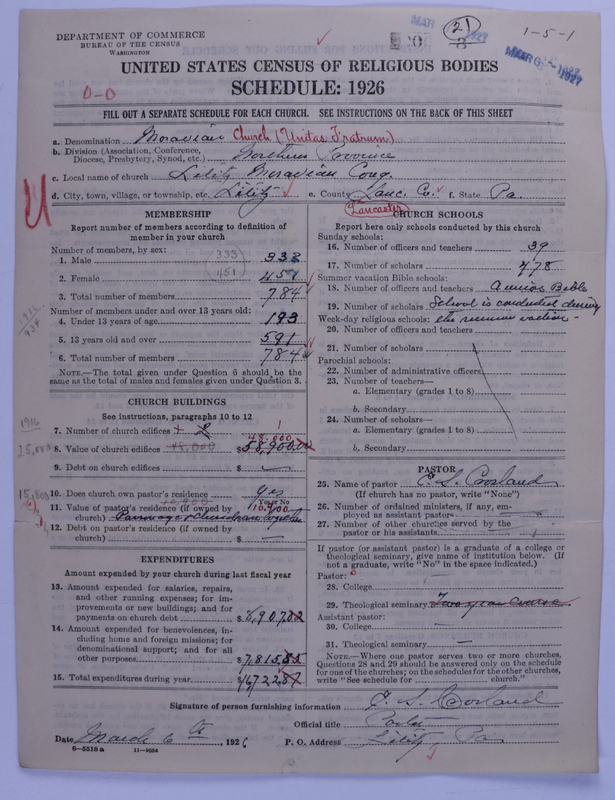 DEPARTMENT OF COMMERCE
BUREAU OF THE CENSUS
WASHINGTON
MAR
1927
21
3
1-5-1
MAR 1927
UNITED STATES CENSUS OF RELIGIOUS BODIES
SCHEDULE: 1926
0-0
FILL OUT A SEPARATE SCHEDULE FOR EACH CHURCH. SEE INSTRUCTIONS ON THE BACK OF THIS SHEET
a. Denomination Moravian Church (Unitas Fratrum)
b. Division (Association, Conference, Diocese, Presbytery, Synod, etc.) Northern Province
c. Local name of church Lititz Moravian Cong.
d. City, town, village, or township, etc. Lititz e. County Lanc. Co. f. State Pa.
Lancaster
MEMBERSHIP
Report number of members according to definition of
member in your church
Number of members, by sex:
1. Male 333 333
2. Female 451 451
3. Total number of members 784
Number of members under and over 13 years old:
4. Under 13 years of age 193
5. 13 years old and over 591
6. Total number of members 784
NOTE.—The total given under Question 6 should be
same as the total of males and females given under Question 3.
CHURCH BUILDINGS
See instructions, paragraphs 10 to 12
1916
7. Number of church edifices 1
48,000
8. Value of church edifices $58,900.00
9. Debt on church edifices $ —
10. Does church own pastor's residence Yes
Yes or No
11. Value of pastor's residence (if owned by
church) Parsonage & Church are together 10,900
12. Debt on pastor's residence (if owned by
church) $ —
EXPENDITURES
Amount expended by your church during last fiscal year
13. Amount expended for salaries, repairs,
and other running expenses; for im-
provements or new buildings; and for
payments on church debt $8,907.02
14. Amount expended for benevolences, in-
cluding home and foreign missions; for
denominational support; and for all
other purposes $7,815.85
15. Total expenditures during year $16,722.87
CHURCH SCHOOLS
Report here only schools conducted by this church
Sunday schools:
16. Number of officers and teachers 39
17. Number of scholars 478
Summer vacation Bible schools:
18. Number of officers and teachers A union Bible
19. Number of scholars School is conducted during
Week-day religious schools: the summer vacation -
20. Number of officers and teachers
21. Number of scholars
Parochial schools:
22. Number of administrative officers
23. Number of teachers—
a. Elementary (grades 1 to 8)
b. Secondary
24. Number of scholars—
a. Elementary (grades 1 to 8)
b. Secondary
PASTOR
25. Name of pastor
(If church has no pastor, write "None")
26. Number of ordained ministers, if any, em-
ployed as assistant pastor —
27. Number of other churches served by the
pastor or his assistants —
If pastor (or assistant pastor) is a graduate of a college or
theological seminary, give name of institution below. (If
not a graduate, write "No" in the space indicated.)
Pastor: 0
28. College
29. Theological seminary Two year course
Assistant pastor:
30. College —
31. Theological seminary —
NOTE.—Where one pastor serves two or more churches,
Questions 28 and 29 should be answered only on the schedule
for one of the churches; on the schedules for the other churches,
write "See schedule for church."
Signature of person furnishing information
Official title Pastor
Date March 6th, 1926 P. O. Address Lititz Pa.
6—5518 a 11—9034